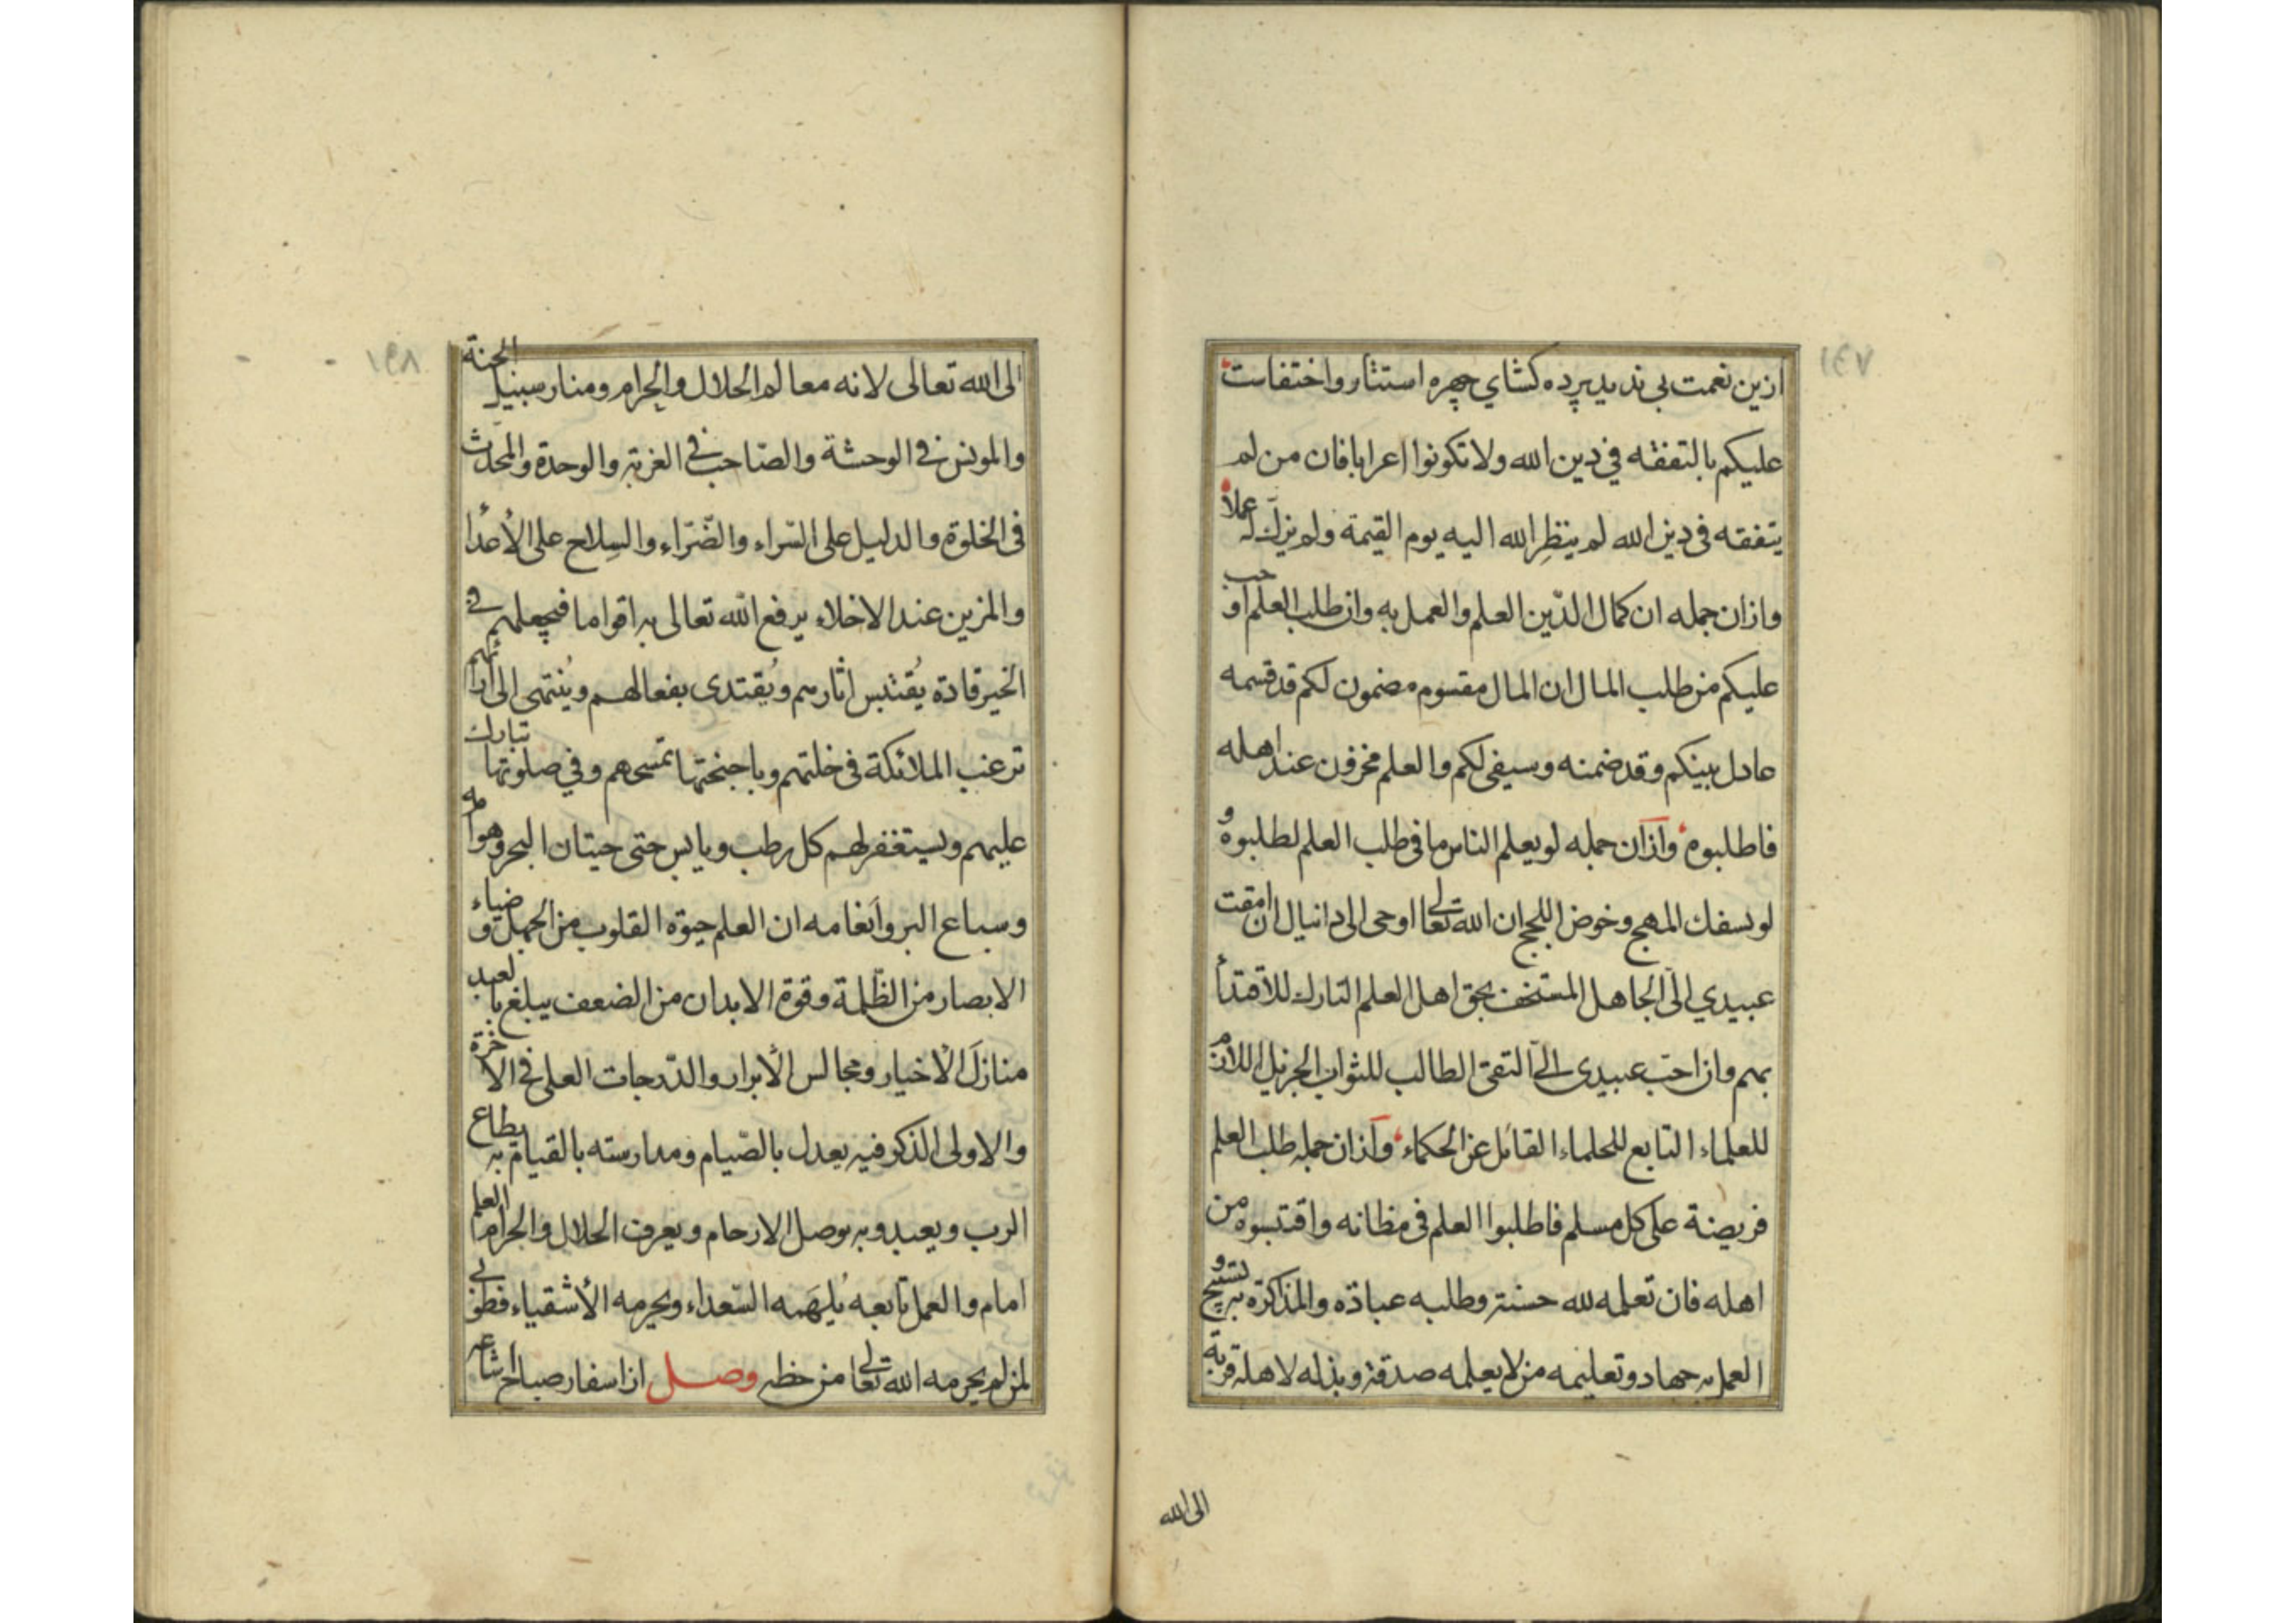 ازین نعمت بی ندید پرده کشای چهره استتار و اختفاست
علیکم بالتفقه فی دین الله ولا تکونوا اعرابا فان من لم
یتفقه فی دین الله لم ینظر الله الیه یوم القیمة ولم یزکّ له عملاً
وازان جمله ان کمال الدّین العلم والعمل به وان طلب العلم اوجب
علیکم من طلب المال ان المال مقسوم مضمون لکم قد قسمه
عادل بینکم وقد ضمنه وسیفی لکم والعلم مخزون عند اهله
فاطلبوه وازان جمله لو یعلم الناس ما فی طلب العلم لطلبوه و
لو بسفك المهج وخوض اللجج ان الله تعالی اوحی الی دانیال ان امقت
عبیدي الیّ الجاهل المستخف بحق اهل العلم التارك للاقتدأ
بهم وان احب عبیدی الیّ التقی الطالب للثواب الجزیل اللازم
للعلماء التابع للحلماء القائل عن الحکماء وازان جمله طلب العلم
فریضة علی کل مسلم فاطلبوا العلم فی مظانه واقتبسوه من
اهله فان تعلمه لله حسنة وطلبه عبادة والمذاکرة به تسبیح و
العمل به جهاد وتعلیمه من لا یعلمه صدقة وبذله لاهله قربة
الی الله
۱۹۷
الی الله تعالی لانه معالم الحلال والحرام ومنار سبیل الجنة
والمونس فی الوحشة والصّاحب فی الغربة والوحدة والمحدّث
فی الخلوة والدلیل علی السّراء والضّرّاء والسلاح علی الأعدا
والمزین عند الاخلاء یرفع الله تعالی به اقواما فیجعلهم فی
الخیر قادة یُقتبس اثارهم ویُقتدی بفعالهم ویُنتهی الی ارائهم
ترغب الملائکة فی خلتهم وباجنحتها تمسحهم وفی صلوتها تبارك
علیهم ویستغفر لهم کل رطب ویابس حتی حیتان البحر وهوامه
وسباع البر وأنعامه ان العلم حیوة القلوب من الجهل و ضیاء
الابصار من الظّلمة وقوة الابدان من الضعف یبلغ بالعبد
منازلَ الأخیار ومجالس الأبرار والدّرجات العلی فی الآخرة
والاولی الذکر فیه یعدل بالصّیام ومدارسته بالقیام به یطاع
الرب ویعبد وبه یوصل الارحام ویعرف الحلال والحرام العلم
امام والعمل تابعه یُلهَمه السّعداء ویحرمه الأشقیاء فطوبی
لمن لم یحرمه الله تعالی من حظه وصل از اسفار صباح اشاعه
۱۹۸